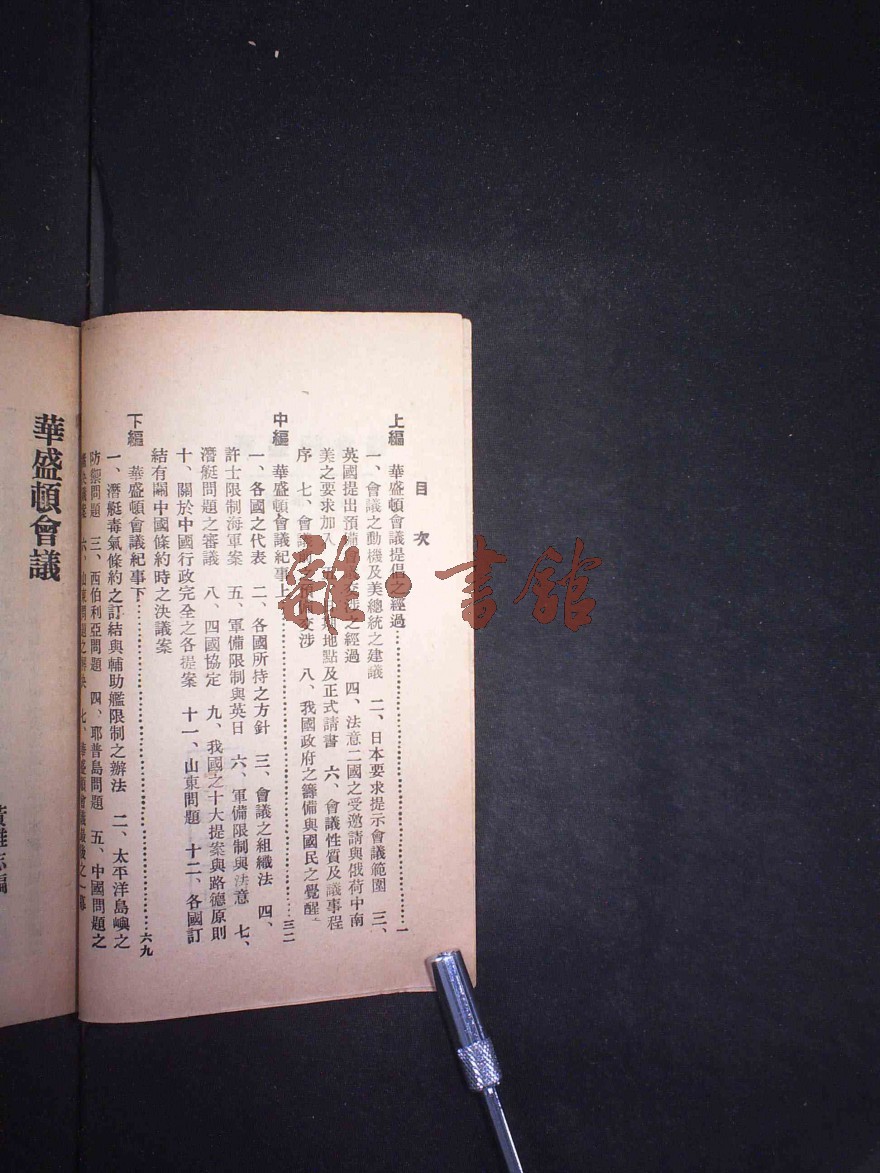 目次
上編　華盛頓會議提倡之經過……一
一、會議之動機及美總統之建議　二、日本要求提示會議範圍　三、
英國提出預備 交涉之經過　四、法意二國之受邀請與俄荷中南
美之要求加入　五、 地點及正式請書　六、會議性質及議事程
序　七、會議 交涉　八、我國政府之籌備與國民之覺醒
中編　華盛頓會議紀事上……三二
一、各國之代表　二、各國所持之方針　三、會議之組織法　四、
許士限制海軍案　五、軍備限制與英日　六、軍備限制與法意　七、
潛艇問題之審議　八、四國協定　九、我國之十大提案與路德原則
十、關於中國行政完全之各提案　十一、山東問題　十二、各國訂
結有關中國條約時之決議案
下編　華盛頓會議紀事下……六九
一、潛艇毒氣條約之訂結與輔助艦限制之辦法　二、太平洋島嶼之
防禦問題　三、西伯利亞問題　四、耶普島問題　五、中國問題之
決議案　六、山東問題之解決　七、華盛頓會議最後之一幕
華盛頓會議
編
雜·書館